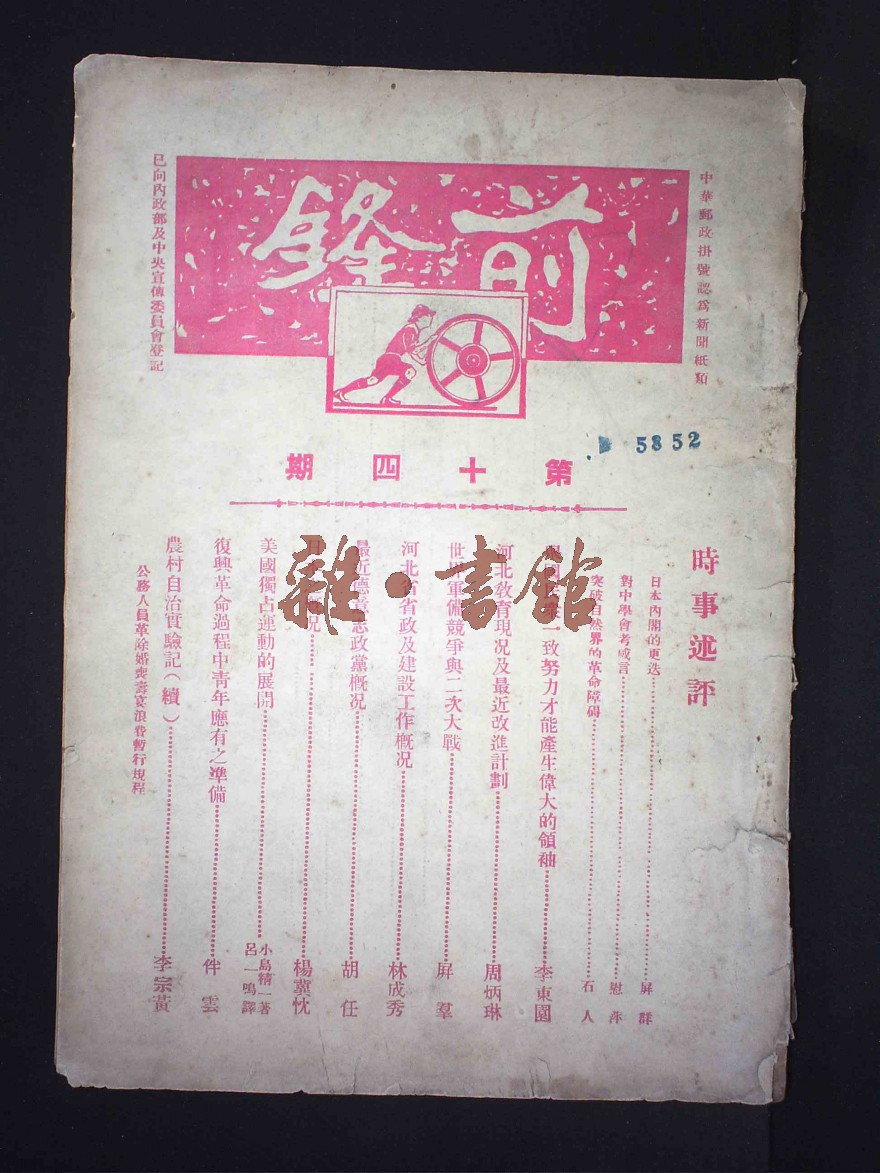 中華郵政掛號認爲新聞紙類
前鋒
已向內政部及中央宣傳委員會登記
第十四期
5852
時事述評
日本內閣的更迭 屏群
對中學會考感言 慰萍
突破自然界的革命障碍 石人
一致努力才能產生偉大的領袖 李東園
河北教育現况及最近改進計劃 周炳琳
世界軍備競爭與二次大戰 屏羣
河北省省政及建設工作概况 林成秀
最近德意志政黨概况 胡任
况 楊冀忱
美國獨占運動的展開 小島精一著 呂一鳴譯
復興革命過程中靑年應有之準備 伴雲
農村自治實驗記(續) 李宗黃
公務人員革除婚喪壽宴浪費暫行規程
雜·書館